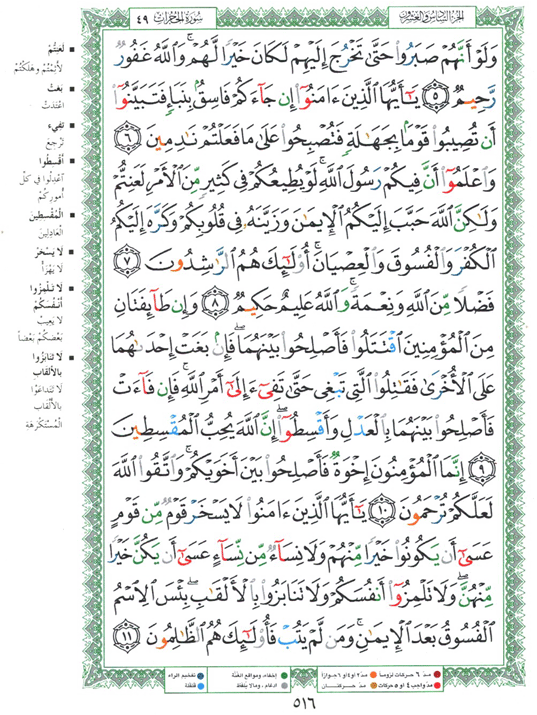 الجزء السادس والعشرون
سورة الحجرات ٤٩
وَلَوْ أَنَّهُمْ صَبَرُوا۟ حَتَّىٰ تَخْرُجَ إِلَيْهِمْ لَكَانَ خَيْرًا لَّهُمْ ۚ وَٱللَّهُ غَفُورٌ
رَّحِيمٌ ٥ يَـٰٓأَيُّهَا ٱلَّذِينَ ءَامَنُوٓا۟ إِن جَآءَكُمْ فَاسِقٌۢ بِنَبَإٍ فَتَبَيَّنُوٓا۟
أَن تُصِيبُوا۟ قَوْمًۢا بِجَهَـٰلَةٍ فَتُصْبِحُوا۟ عَلَىٰ مَا فَعَلْتُمْ نَـٰدِمِينَ ٦
وَٱعْلَمُوٓا۟ أَنَّ فِيكُمْ رَسُولَ ٱللَّهِ ۚ لَوْ يُطِيعُكُمْ فِى كَثِيرٍ مِّنَ ٱلْأَمْرِ لَعَنِتُّمْ
وَلَـٰكِنَّ ٱللَّهَ حَبَّبَ إِلَيْكُمُ ٱلْإِيمَـٰنَ وَزَيَّنَهُۥ فِى قُلُوبِكُمْ وَكَرَّهَ إِلَيْكُمُ
ٱلْكُفْرَ وَٱلْفُسُوقَ وَٱلْعِصْيَانَ ۚ أُو۟لَـٰٓئِكَ هُمُ ٱلرَّٰشِدُونَ ٧
فَضْلًا مِّنَ ٱللَّهِ وَنِعْمَةً ۚ وَٱللَّهُ عَلِيمٌ حَكِيمٌ ٨ وَإِن طَآئِفَتَانِ
مِنَ ٱلْمُؤْمِنِينَ ٱقْتَتَلُوا۟ فَأَصْلِحُوا۟ بَيْنَهُمَا ۖ فَإِنۢ بَغَتْ إِحْدَىٰهُمَا
عَلَى ٱلْأُخْرَىٰ فَقَـٰتِلُوا۟ ٱلَّتِى تَبْغِى حَتَّىٰ تَفِىٓءَ إِلَىٰٓ أَمْرِ ٱللَّهِ ۚ فَإِن فَآءَتْ
فَأَصْلِحُوا۟ بَيْنَهُمَا بِٱلْعَدْلِ وَأَقْسِطُوٓا۟ ۖ إِنَّ ٱللَّهَ يُحِبُّ ٱلْمُقْسِطِينَ
٩ إِنَّمَا ٱلْمُؤْمِنُونَ إِخْوَةٌ فَأَصْلِحُوا۟ بَيْنَ أَخَوَيْكُمْ ۚ وَٱتَّقُوا۟ ٱللَّهَ
لَعَلَّكُمْ تُرْحَمُونَ ١٠ يَـٰٓأَيُّهَا ٱلَّذِينَ ءَامَنُوا۟ لَا يَسْخَرْ قَوْمٌ مِّن قَوْمٍ
عَسَىٰٓ أَن يَكُونُوا۟ خَيْرًا مِّنْهُمْ وَلَا نِسَآءٌ مِّن نِّسَآءٍ عَسَىٰٓ أَن يَكُنَّ خَيْرًا
مِّنْهُنَّ ۖ وَلَا تَلْمِزُوٓا۟ أَنفُسَكُمْ وَلَا تَنَابَزُوا۟ بِٱلْأَلْقَـٰبِ ۖ بِئْسَ ٱلِٱسْمُ
ٱلْفُسُوقُ بَعْدَ ٱلْإِيمَـٰنِ ۚ وَمَن لَّمْ يَتُبْ فَأُو۟لَـٰٓئِكَ هُمُ ٱلظَّـٰلِمُونَ ١١
لَعَنِتُّمْ
لَأَثِمْتُمْ وَهَلَكْتُمْ
بَغَتْ
اعْتَدَتْ
تَفِيءَ
تَرْجِعَ
أَقْسِطُوا
اعْدِلُوا فِي كُلِّ
أُمورِكُمْ
الْمُقْسِطِينَ
الْعَادِلِينَ
لَا يَسْخَرْ
لَا يَهْزَأْ
لَا تَلْمِزُوا
أَنْفُسَكُمْ
لَا يَعِبْ
بَعْضُكُمْ بَعْضاً
لَا تَنَابَزُوا
بِالأَلْقَابِ
لَا تَتَدَاعَوْا
بِالأَلْقَابِ
الْمُسْتَكْرَهَة
مدّ ٦ حركات لزوماً
مدّ ٢ أو ٤ أو ٦ جوازاً
إخفاء، ومواقع الغنّة
تفخيم الراء
مدّ واجب ٤ أو ٥ حركات
مدّ حركتان
ادغام، وما لا يُلفظ
قلقلة
٥١٦